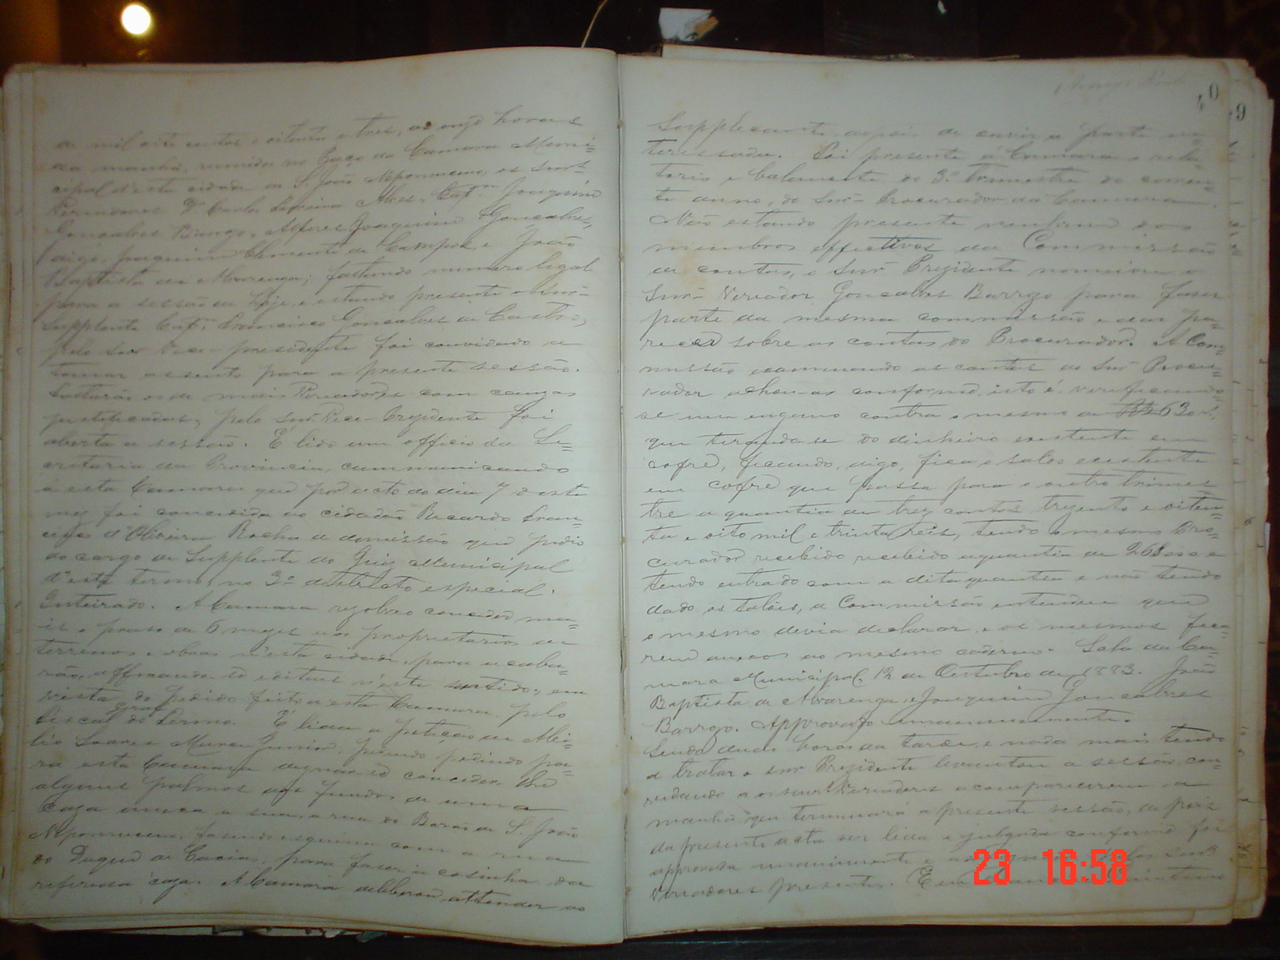 de mil oito centos e oitenta e tres, as onze horas
da manhã, reunidos no Paço da Camara Muni=
cipal d'esta cidade de S. João Nepomuceno, os Snrs
Vereadores Dr Carlos Ferreira Alves, Capm Joaquim
Gonsalves Barrgo, Alferes Joaquim Gonsalves,
digo, Joaquim Clemente de Campos e João
Baptista de Alvarenga; faltando numero legal
para a sessão de hoje, e estando presente o snr
supplente Capm Francisco Gonsalves de Castro,
pelo snr Vice-presidente foi convidado a
tomar assento para a presente sessão.
Faltarão os de mais Vereadores com causas
justificadas, pelo Snr Vice-Prezidente foi
aberta a sessão. É lido um officio da Se=
cretaria da Provincia, communicando
a esta Camara que por acto do dia 7 d'este
mez foi concedida ao cidadão Ricardo Fran=
cisco d'Oliveira Rocha a demissão que pedio
do cargo de Supplente do Juiz Municipal
d'este termo, no 3º districto especial.
Inteirado. A Camara rezolveo conceder ma=
is o praso de 6 mezes aos proprietarios de
terrenos e obras n'esta cidade, para acaba=
rão, affixando-se editaes n'este sentido, em
vista do pedido feito a esta Camara pelo
fiscal Fermo. É lida a petição de
Soares Junior, pedindo pa=
ra esta Camara dignar-se conceder-lhe
alguns palmos aos fundos de uma
caza a rua do Barão de S. João
Nepomuceno, fasendo esquina com a rua
do Duque de Caxias, para faser a cosinha da
referida caza. A Camara deliberou attender ao
40
9
Supplicante depois de ouvir a parte in=
teressada. Foi presente á Camara o rela=
torio e balancete do 3º trimestre do corren=
te anno, do Snr Procurador da Camara.
Não estando presente nenhum dos
membros effectivos da Commissão
de contas, o Snr Prezidente nomeiou o
Snr Vereador Gonsalves Barrgo para faser
parte da mesma commissão e dar pa=
recer sobre as contas do Procurador. A Com=
missão examinando as contas do Snr Procu=
rador achou-as conforme, isto é verificando-
se um engano contra o mesmo de 630 rs,
que dinheiro existente em
cofre, ficando, digo, fica o saldo existente
em cofre que passa para o outro trimes=
tre a quantia de trez contos trezentos e oiten=
ta e oito mil e trinta reis, tendo o mesmo Pro=
curador recebido recebido a quantia de e
tendo entrado com a dita quantia e não tendo
dado os talões, a Commissão entendeu que
o mesmo devia declarar, e os mesmos fica=
rem anexos ao mesmo caderno. Sala da Ca=
mara Municipal 12 de Outubro de 1883. João
Baptista de Alvarenga, Joaquim Gonsalves
Barrgo. Approvado unanimemente.
Sendo duas horas da tarde, e nada mais tendo
a tratar o snr Prezidente levantou a sessão, con=
vidando a os snrs Vereadores a comparecerem a
manhã que terminará a presente sessão, depois
da presente acta ser lida e julgada conforme foi
approvada unanimemente e pelos Snrs
Vereadores presentes. Eu
23 16:58